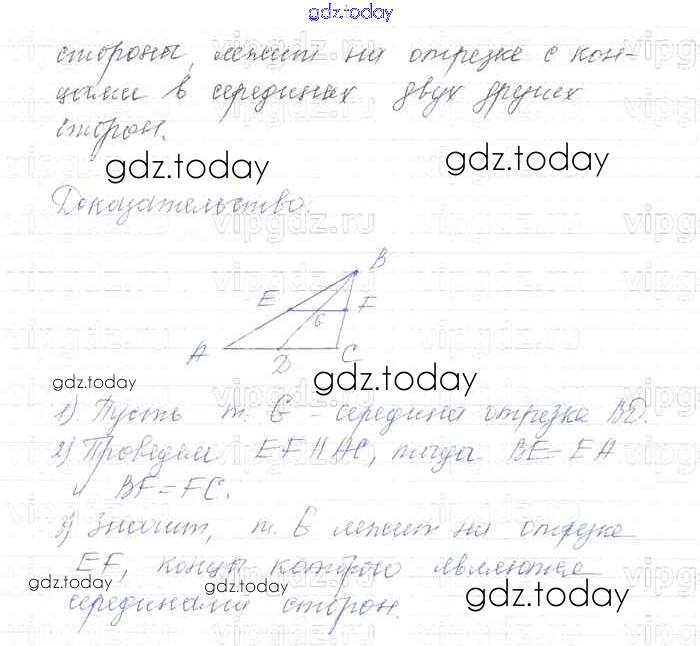 gdz.today
стороны, лежит на отрезке с кон-
цами в серединах двух других
сторон.
gdz.today
gdz.today
Доказательство:
B
E
F
G
A
D
C
gdz.today
gdz.today
1) Пусть т. G - середина отрезка BD.
2) Проведем EF || AC, тогда BE = EA
и BF = FC.
3) Значит, т. G лежит на отрезке
EF, концы которого являются
gdz.today
gdz.today
gdz.today
серединами сторон.